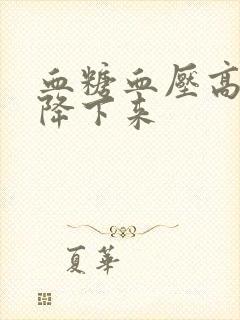 血糖血壓高
降下来
夏華